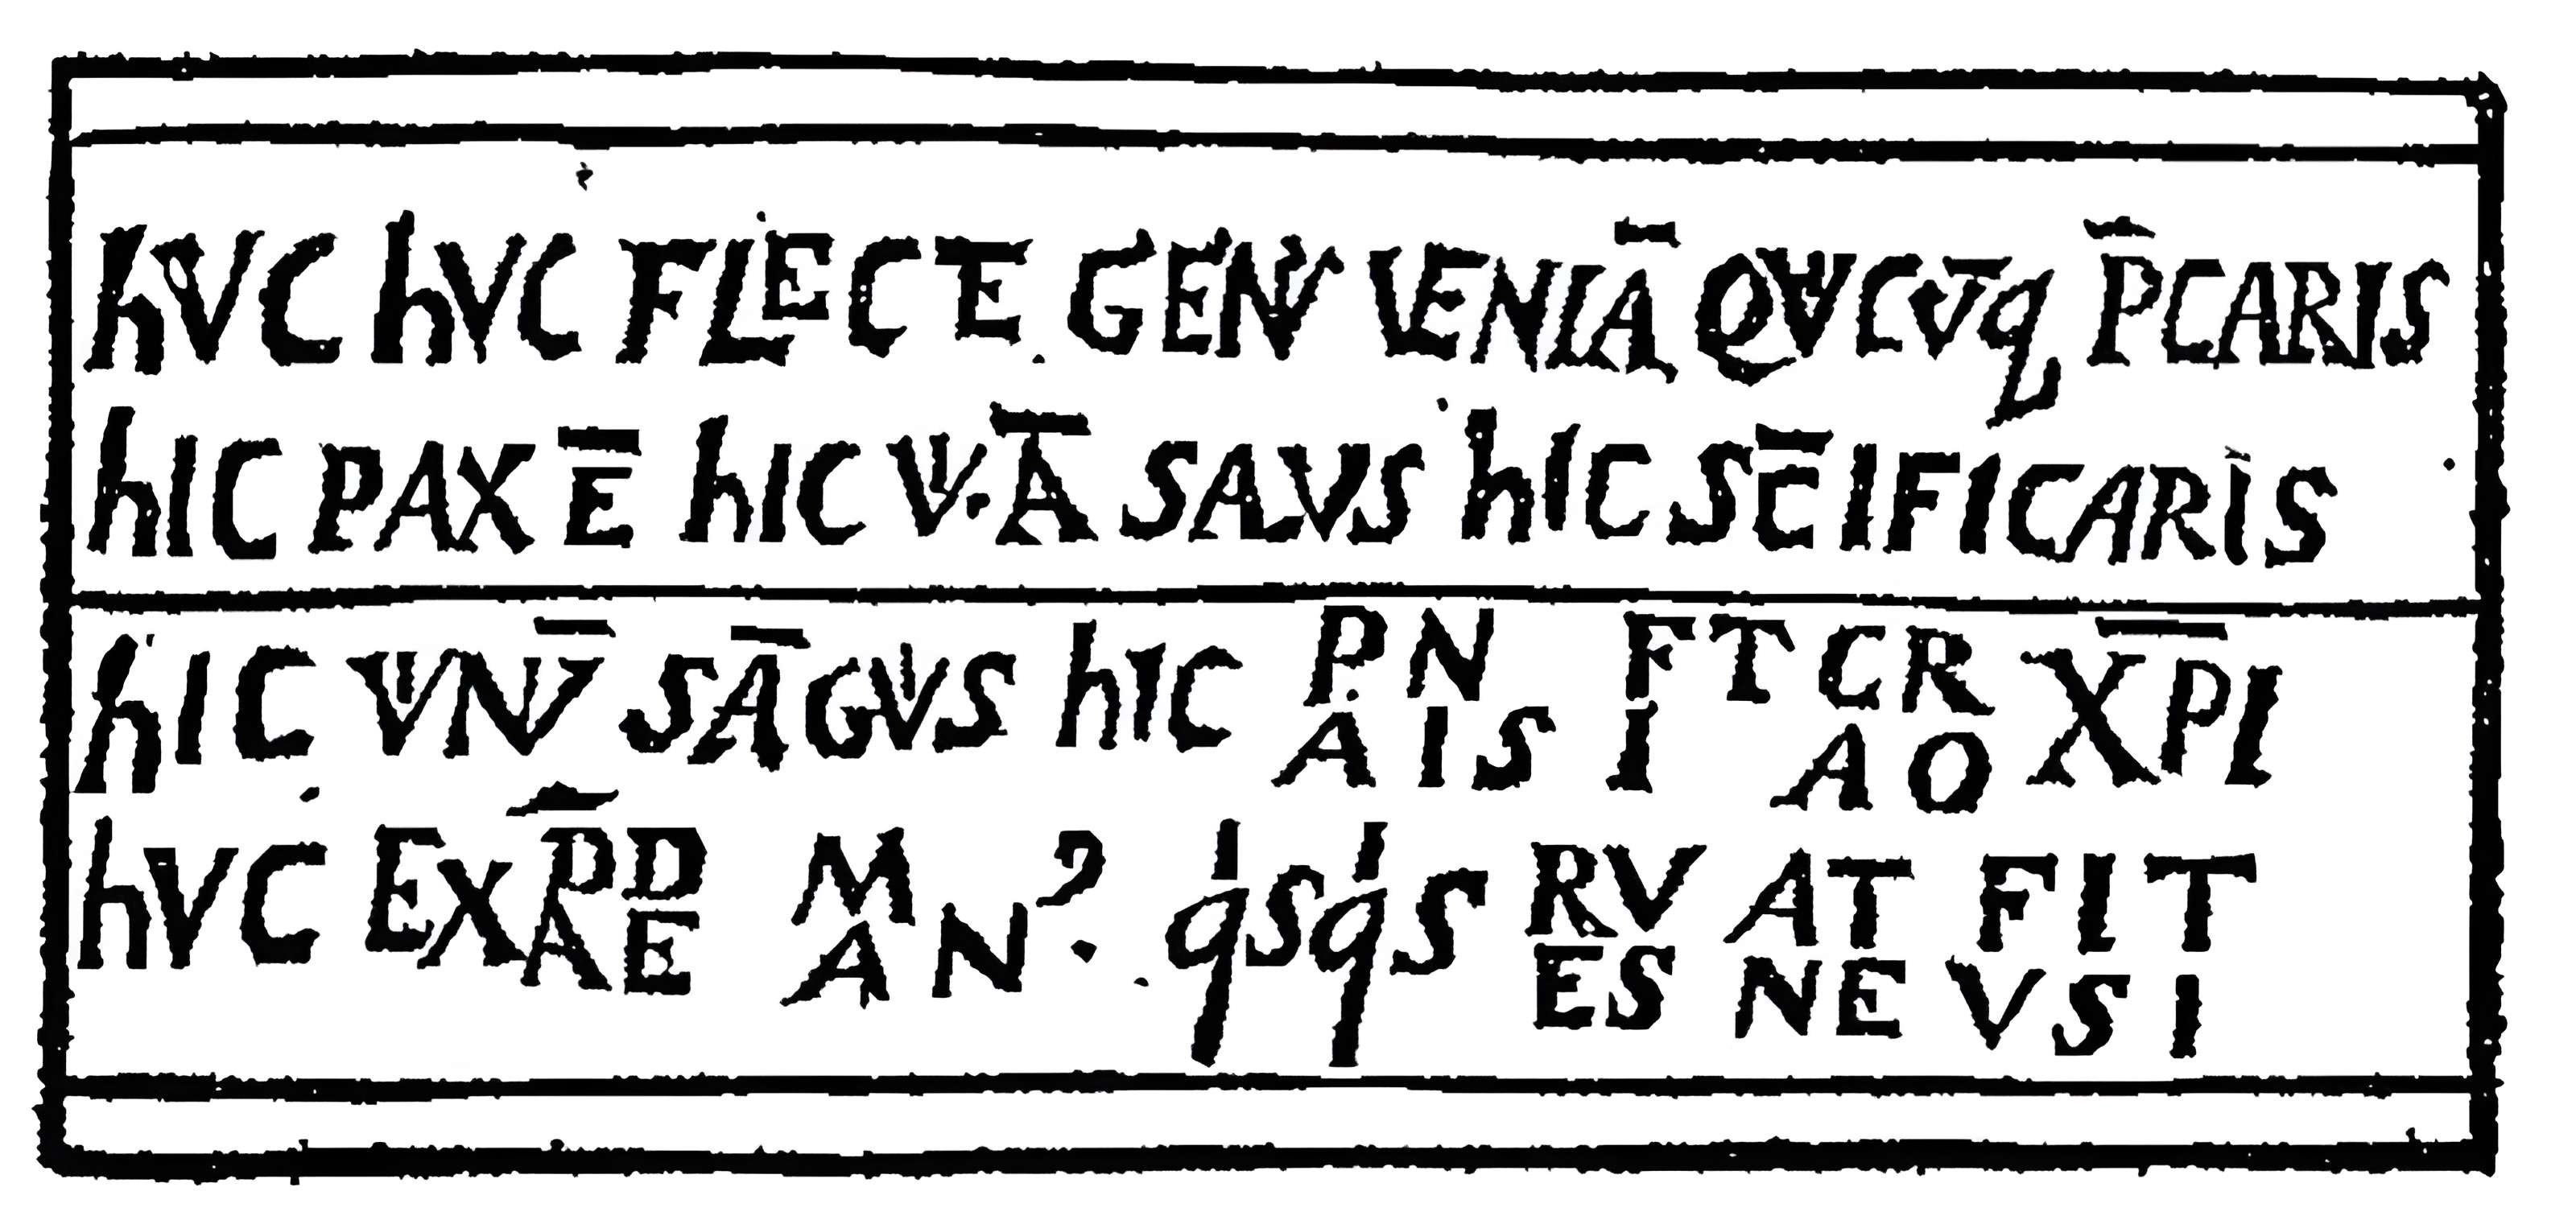 hVC hVC FLECTE GENV VENIĀ QVCV̄q P̄CARIS
hIC PAX Ē hIC V·Ā SALVS hIC SC̄IFICARIS
hIC VNV̄ SĀGVS hIC PANIS FIT CARO XP̄I
hVC EXP̄ADE MANꝰ qͥsqͥs REVS ANTE FVISTI